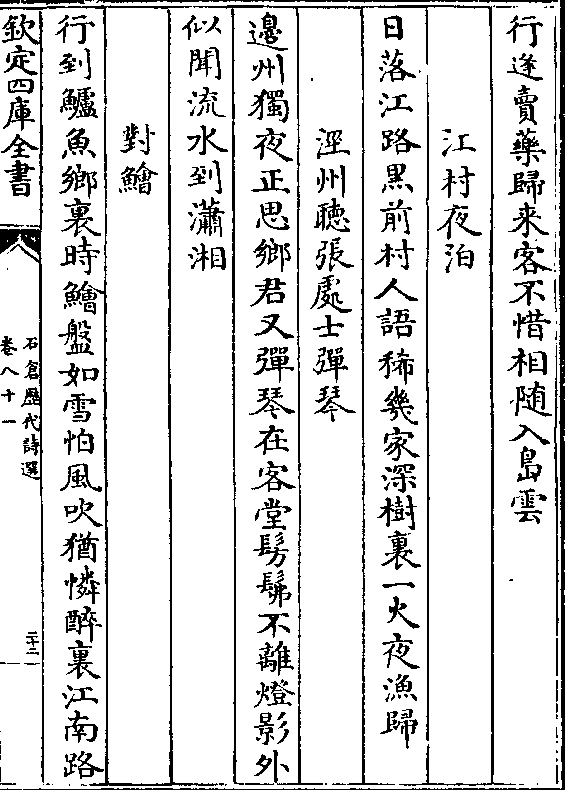 行遂賣藥歸来客不惜相随入島雲
江村夜泊
日落江路黒前村人語稀幾家深樹裏一火夜漁歸
涇州聽張處士彈琴
邊州獨夜正思鄉君又彈琴在客堂髣髴不離燈影外
似聞流水到瀟湘
對鱠
行到鱸魚鄉裏時鱠盤如雪怕風吹猶憐醉裏江南路
欽定四庫全書
石倉歴代詩選
卷八十一
二十二